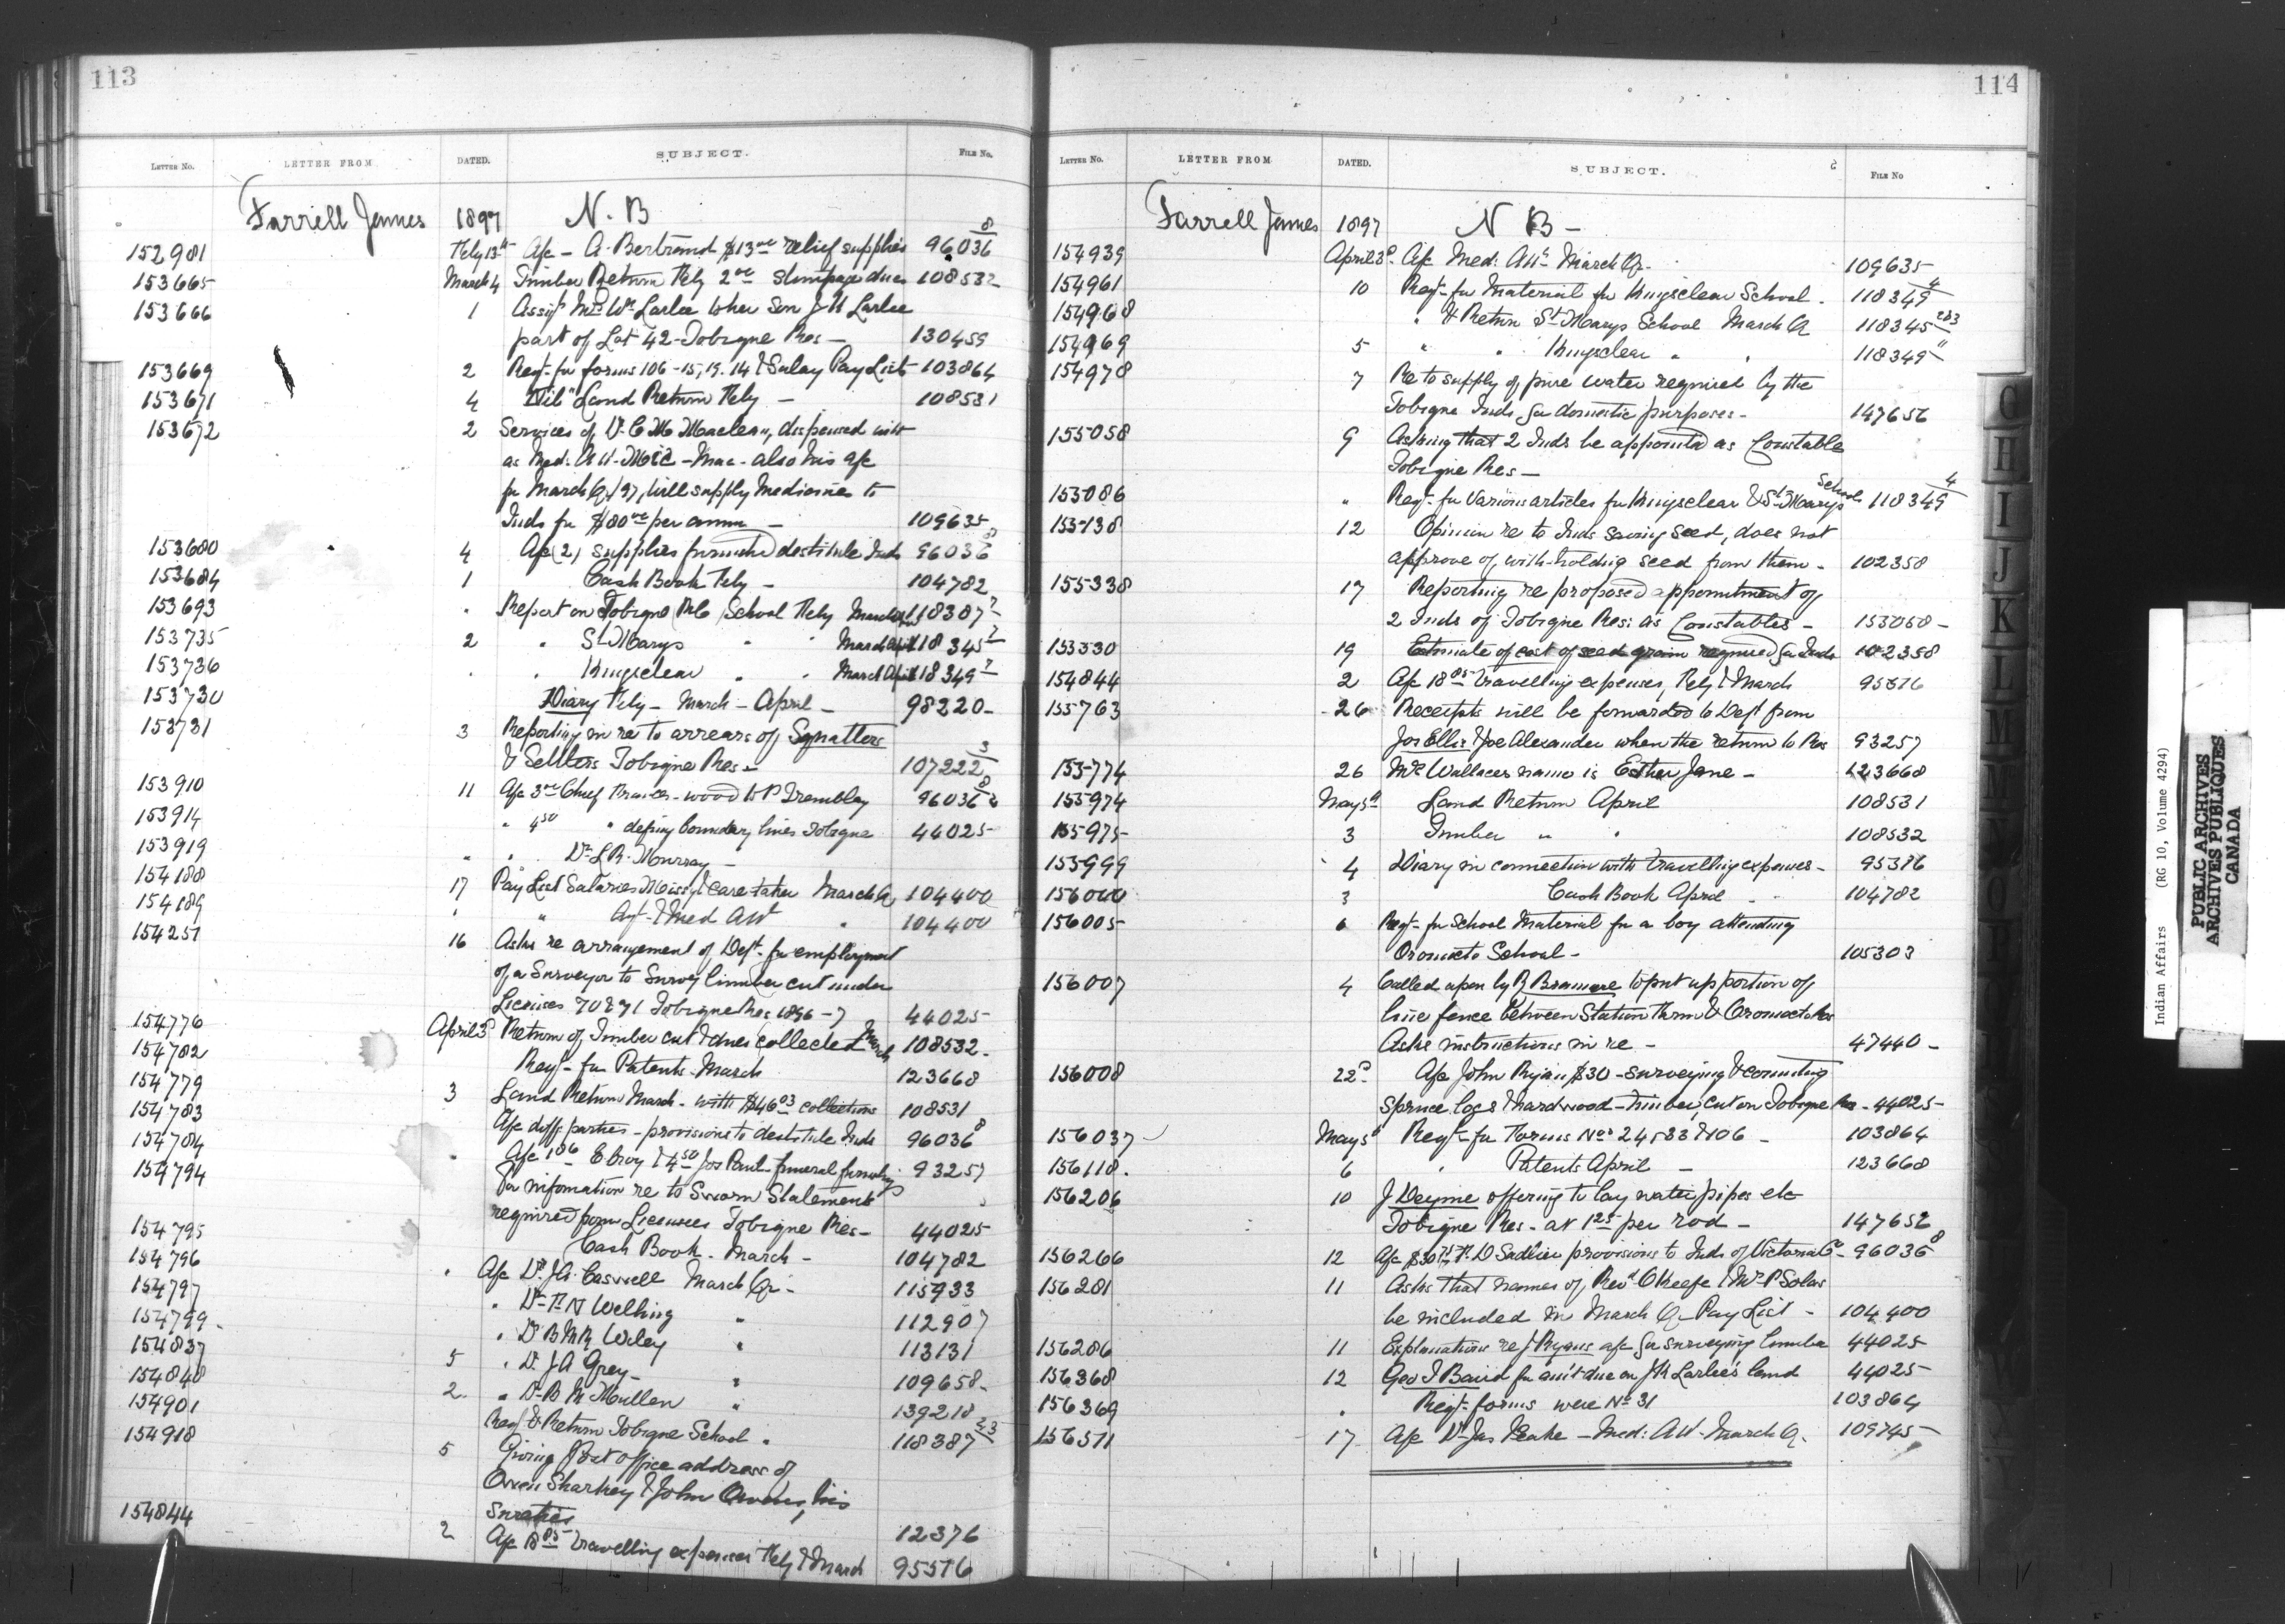 113
LETTER NO. LETTER FROM DATED. SUBJECT. FILE No.
Farrell James 1897 N. B
152981 Feby 13th A/c - A. Bertrand $13.00 relief supplies 96036 8
153665 March 4 Timber Return Feby stumpage dues 108532
153666 1 Assigt Mrs Wm Larlee to her Son J H Larlee
part of Lot 42 - Tobique Res - 130459
153669 2 Reqt. for forms 106 - 15, 19. 14 & Salary Pay Lists 103864
153671 4 "Nil" Land Return Feby - 108531
153672 2 Services of Dr. C. M. Maclean, dispensed with
as Med: Att. - also his a/c
for March Q/97, will supply Medicines to
Inds for $80.00 per annum - 109635
153680 4 A/c (2) supplies furnished destitute Inds 96036 8
153684 1 Cash Book Feby - 104782
153693 " Report on Tobique School Feby March April 118387
153735 2 " St Marys " " March April 118345
153736 " " Kingsclear " " March April 118349
153730 Diary Feby - March - April - 98220 -
153731 3 Reporting in re to arrears of Squatters
& Settlers Tobique Res - 107222 3
153910 11 A/c 3.00 Chief Francis - wood to P Tremblay 96036 8
153914 " 4.50 " defining boundary lines Tobique 44025
153919 " " Dr L R. Murray -
154188 17 Pay List Salaries Missy & care taker March Q 104400
154189 " " Agt. & Med Att " 104400
154251 16 Asks re arrangement of Dept. for employment
of a Surveyor to Survey timber cut under
Licenses 70 & 71 Tobique Res 1896-7 44025
154776 April 3d Return of Timber cut & dues collected March 108532 -
154782 Reqt - for Patents - March 123668
154779 3 Land Return March - with $46.03 collections 108531
154783 A/c diff. parties - provisions to destitute Inds 96036 8
154784 " A/c E. Croy & 4.50 Jos Paul - funeral 93257
154794 For information re to Sworn Statements
required from Licensees Tobique Res - 44025
154795 Cash Book - March - 104782
154796 " A/c Dr. J. A. Caswell March Qr - 115933
154797 " Dr. T. N Welling " 112907
154799 " Dr B M Wiley " 113131
154837 5 " Dr. J A Grey - " 109658 -
154848 2 " Dr. B M Mullen " 139218
154901 Reqt & Return Tobique School " 118387 2&3
154918 5 Giving Post Office address of
Owen Sharkey & John Owens, his
Sureties 12376
154844 2 A/c 18.85 travelling expenses Feby & March 95576
114
LETTER NO. LETTER FROM DATED. SUBJECT. FILE No
Farrell James 1897 N B -
154939 April 3d A/c Med: Att. March Qr. 109635
154961 10 Reqt - for Material for Kingsclear School - 118349 4
154968 " & Return St Marys School March Q 118345 2&3
154969 5 " " Kingsclear " " 118349 11
154978 7 Re to supply of pure water required by the
Tobique Inds for domestic purposes - 147656
155058 9 Asking that 2 Inds be appointed as Constable
Tobique Res -
155086 " Reqt - for various articles for Kingsclear & St Marys Schools 118349 4
155138 12 Opinion re to Inds saving seed, does not
approve of, with-holding seed from them - 102358
155338 17 Reporting re proposed appointment of
2 Inds of Tobique Res: as Constables - 155058 -
155530 19 Estimate of cost of seed grain required for Inds 102358
154844 2 A/c 18.85 travelling expenses, Feby & March 95576
155763 26 Receipts will be forwarded to Dept from
Jos Ellis & Joe Alexander when the return to Res 93257
155774 26 Mrs Wallaces name is Esther Jane - 123668
155974 May 5th Land Return April 108531
155975 3 Timber " " 108532
155999 4 Diary in connection with travelling expenses - 95576
156000 3 Cash Book April - 104782
156005 6 Reqt - for School Material for a boy attending
Oromocto School - 105303
156007 4 Called upon by R to put up portion of
line fence between Station Farm & Oromocto Res
Asks instructions in re - 47440 -
156008 22d A/c John Ryan $30 - surveying & counting
Spruce logs & hardwood - timber cut on Tobique Res - 44025 -
156037 May 5th Reqt - for Forms Nos 24, 33 & 106 - 103864
156118 6 " Patents April - 123668
156206 10 J Deyme offering to lay water pipes etc
Tobique Res - at 1.25 per rod - 147656
156266 12 A/c T. D Sadlier provisions to Inds of Victoria Co - 96036 8
156281 11 Asks that names of Revd O'Keefe & Mr P Solas
be included in March Q - Pay List - 104400
156286 11 Explanation re J Ryans a/c for surveying timber 44025
156368 12 Geo T Baird for am't due on J H Larlee's land 44025
156369 " Reqt - forms were No 31 103864
156511 17 A/c Dr Jas Peake - Med: Att - March Q. 109745
G
H
I
J
K
L
M
Indian Affairs (RG 10, Volume 4294)
PUBLIC ARCHIVES
ARCHIVES PUBLIQUES
CANADA